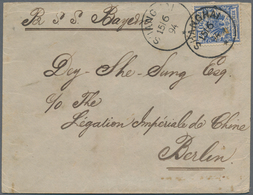 B S S Bayern
SHANGHAI
15/6
94
SHANGHAI
15/6
94
Dzy She-Sung Esq.
c/o The
Légation Impériale de Chine
Berlin